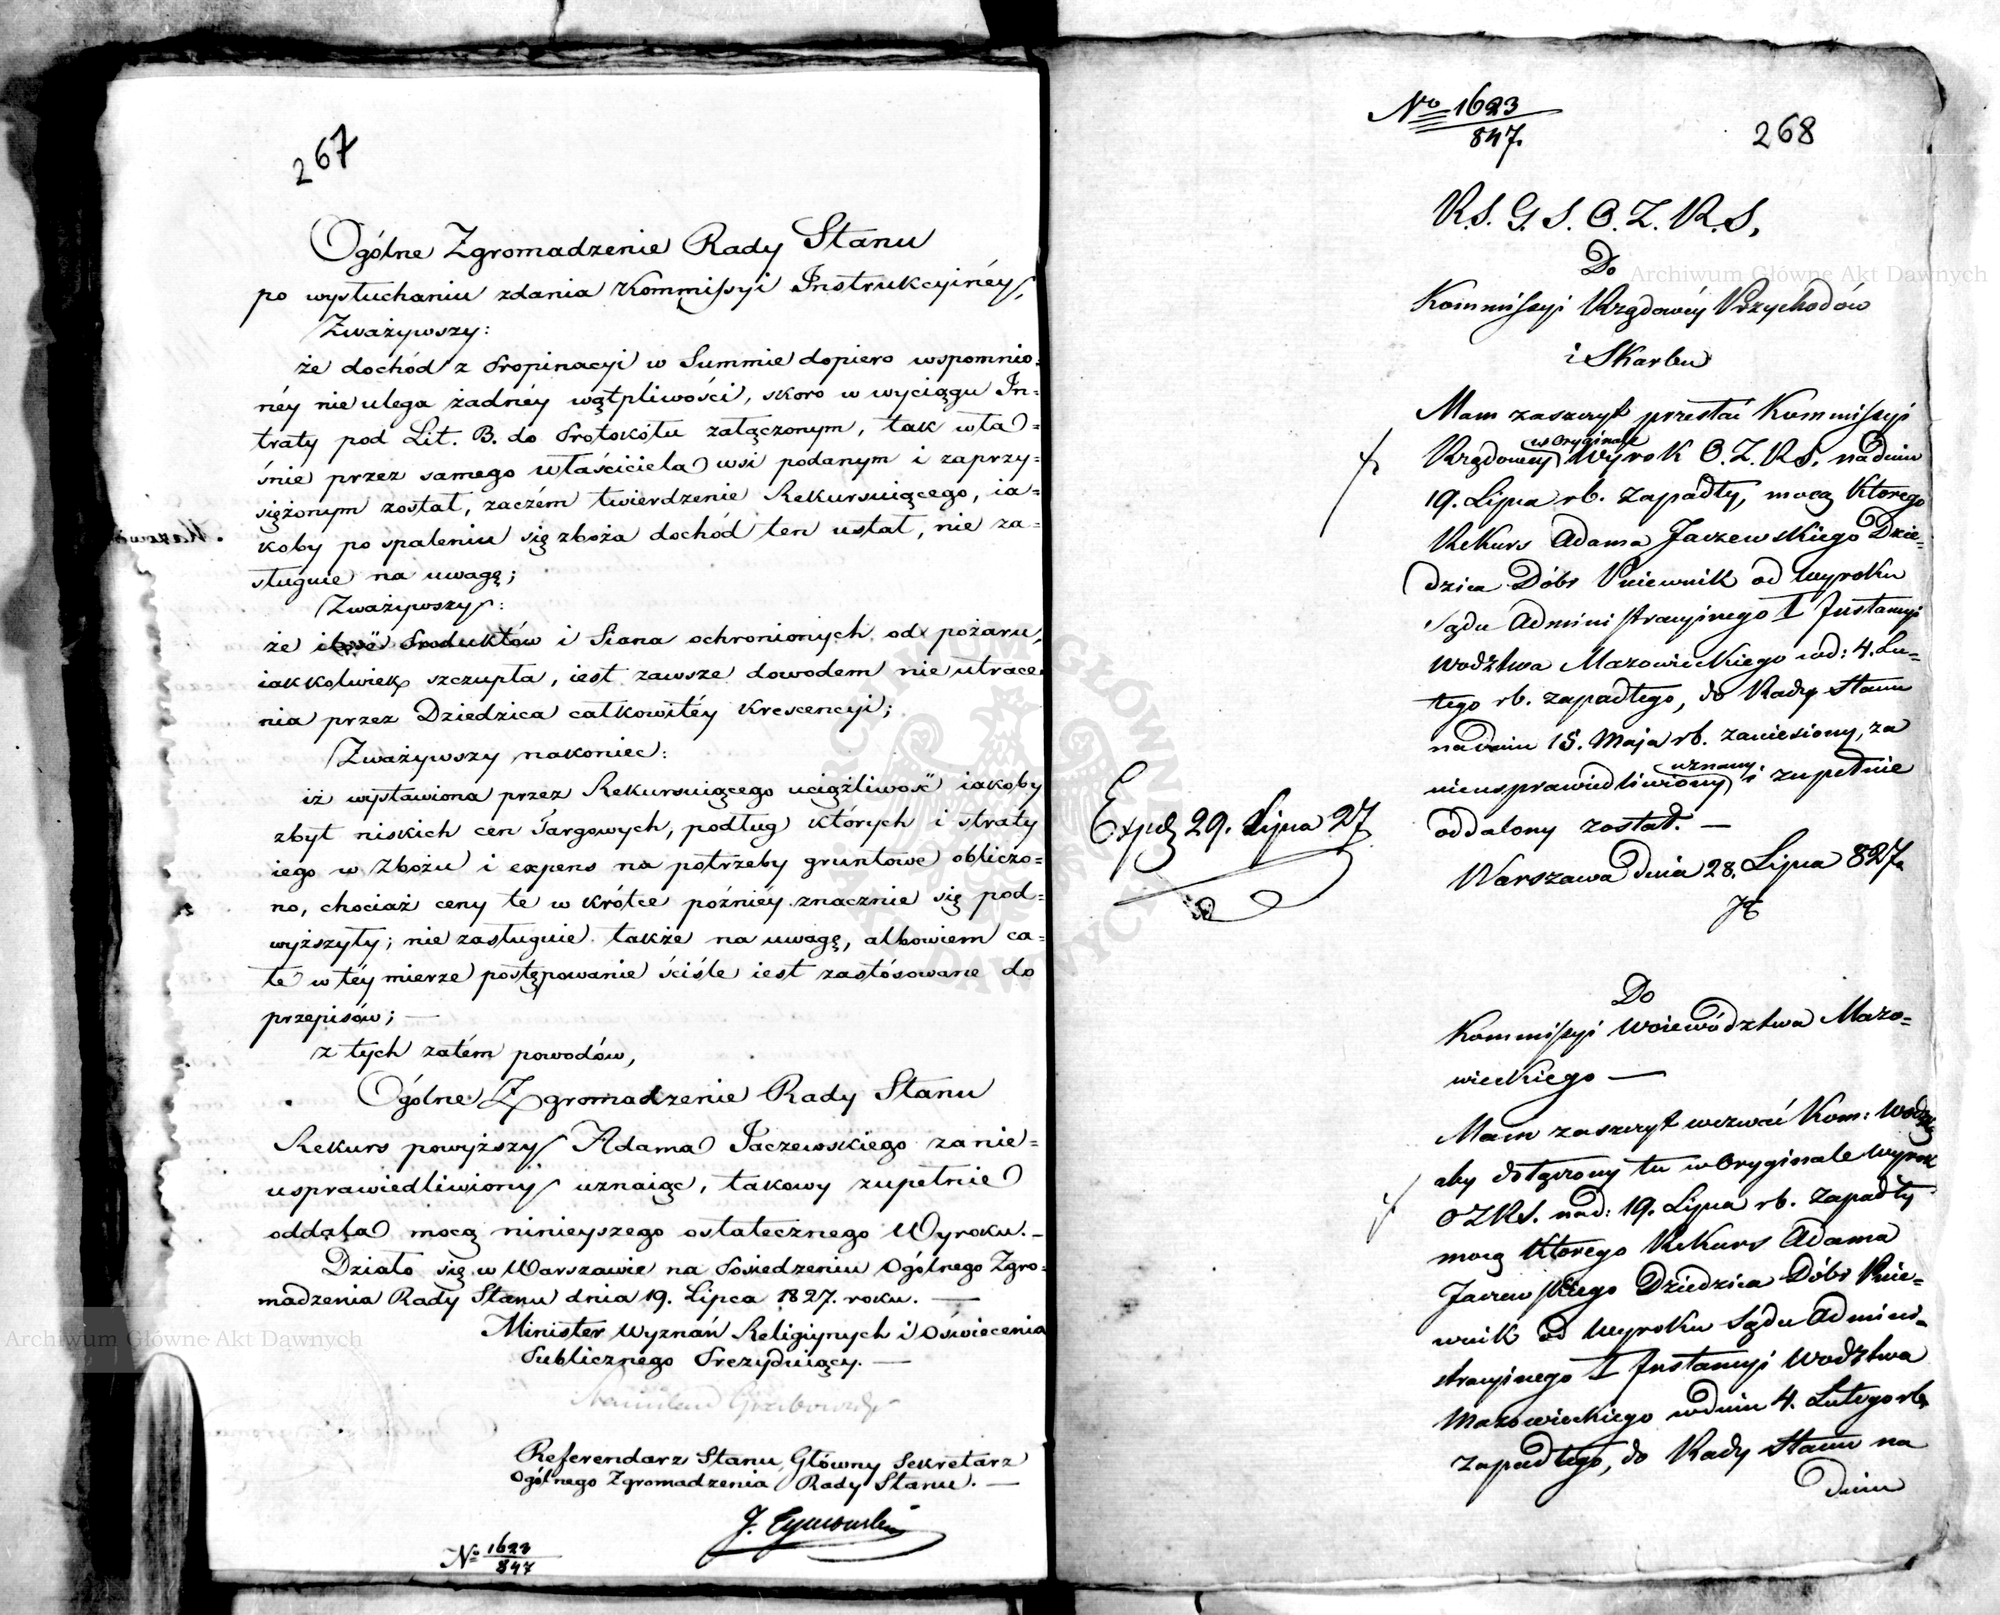 267
Ogólne Zgromadzenie Rady Stanu
po wysłuchaniu zdania Kommissyi Instrukcyinéy,
Zważywszy:
że dochód z Propinacyi w Summie dopiero wspomnio=
néy nie ulega żadnéy wątpliwości, skoro w wyciągu In=
traty pod Lit. B. do Protokółu załączonym, tak wła=
śnie przez samego właściciela wsi podanym i zaprzy=
siężonym został, zaczém twierdzenie Rekursuiącego, ia=
koby po spaleniu się zboża dochód ten ustał, nie za=
sługuie na uwagę;
Zważywszy:
że ilość Produktów i Siana ochronionych od pożaru,
iakkolwiek szczupła, iest zawsze dowodem nie utrace
nia przez Dziedzica całkowitéy Krescencyi;
Zważywszy nakoniec:
iż wystawiona przez Rekursuiącego uciążliwość iakoby
zbyt niskich cen Targowych, podług których i straty
iego w Zbożu i expens na potrzeby gruntowe obliczo=
no, chociaż ceny te w krótce późniéy znacznie się pod=
wyższyły; nie zasługuie także na uwagę, albowiem ca=
łe w téy mierze postępowanie ściśle iest zastósowane do
przepisów; —
z tych zatém powodów,
Ogólne Zgromadzenie Rady Stanu
Rekurs powyższy Adama Jaczewskiego za nie=
usprawiedliwiony uznaiąc, takowy zupełnie
oddala mocą ninieyszego ostatecznego Wyroku. —
Działo się w Warszawie na Posiedzeniu Ogólnego Zgro=
madzenia Rady Stanu dnia 19. Lipca 1827. roku. —
Minister Wyznań Religiynych i Oświecenia
Publicznego Prezyduiący. —
Stanisław Grabowski
Referendarz Stanu, Główny Sekretarz
Ogólnego Zgromadzenia Rady Stanu. —
J. Tymowski
No 1623
847
No 1623
847.
268
R.S. G. S. O. Z. R. S.
Do
Kommissyi Rządowéy Przychodów
i Skarbu
Mam zaszczyt przesłać Kommissyi
w Oryginale
Rządowéy Wyrok O. Z. R. S. na dniu
19. Lipca rb. zapadły, mocą którego
Rekurs Adama Jaczewskiego Dzie=
dzica Dóbr Pniewnik od Wyroku
Sądu Administracyinego I Instancyi
Wodztwa Mazowieckiego w d: 4. Lu=
tego rb. zapadłego, do Rady Stanu
na dniu 15. Maja rb. zaniesiony, za
uznany
nieusprawiedliwiony i zupełnie
oddalony został. —
Warszawa dnia 28. Lipca 827.
Exped 29. Lipca 27
Do
Kommissyi Województwa Mazo=
wieckiego —
Mam zaszczyt wezwać Kom: Wodzką
aby dołączony tu w Oryginale Wyrok
OZRS. na d: 19. Lipca rb. zapadły
mocą którego Rekurs Adama
Jaczewskiego Dziedzica Dóbr Pnie=
wnik od Wyroku Sądu Admini=
stracyinego I Instancyi Wodztwa
Mazowieckiego w dniu 4. Lutego rb.
zapadłego, do Rady Stanu na
dniu
Archiwum Główne Akt Dawnych
Archiwum Główne Akt Dawnych
ARCHIWUM GŁÓWNE AKT DAWNYCH